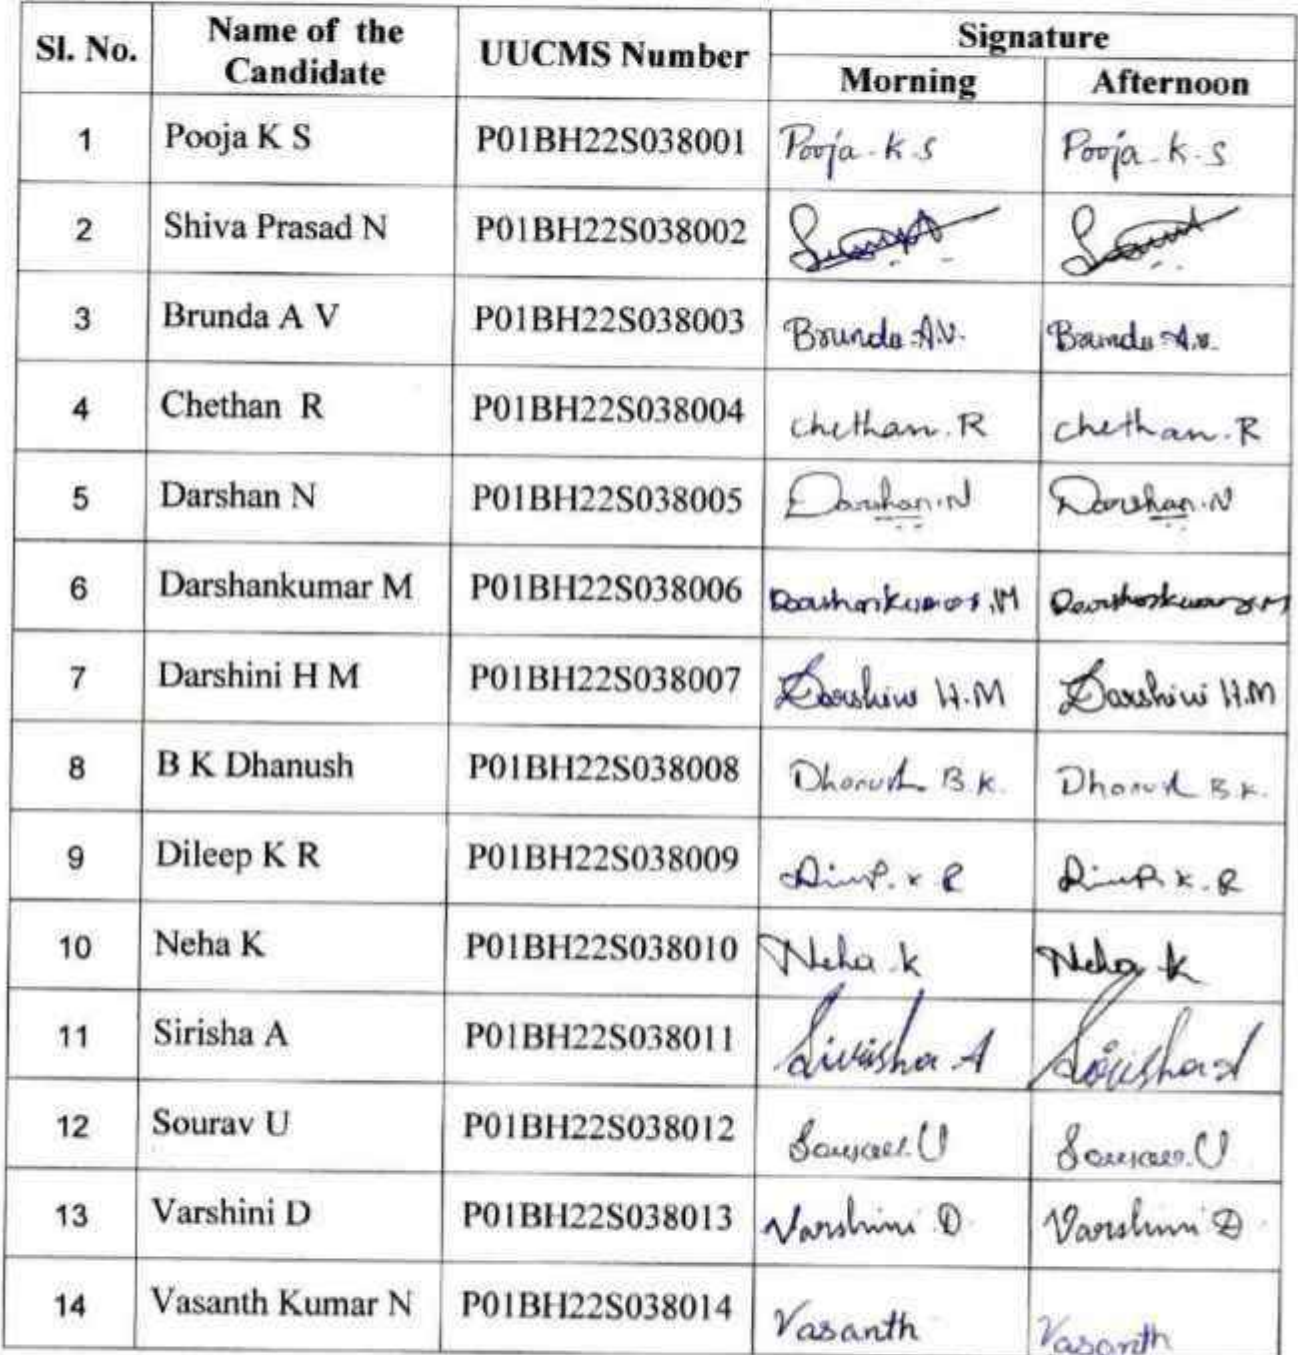 Sl. No. Name of the Candidate UUCMS Number Signature
Morning Afternoon
1 Pooja K S P01BH22S038001 Pooja.K.S Pooja.K.S
2 Shiva Prasad N P01BH22S038002
3 Brunda A V P01BH22S038003 Brunda.A.V. Brunda.A.V.
4 Chethan R P01BH22S038004 Chethan.R Chethan.R
5 Darshan N P01BH22S038005 Darshan.N Darshan.N
6 Darshankumar M P01BH22S038006 Darshankumar.M Darshankumar.M
7 Darshini H M P01BH22S038007 Darshini H.M Darshini H.M
8 B K Dhanush P01BH22S038008 Dhanush B.K. Dhanush B.K.
9 Dileep K R P01BH22S038009 K R K.R
10 Neha K P01BH22S038010 Neha.K Neha K
11 Sirisha A P01BH22S038011 Sirisha A Sirisha A
12 Sourav U P01BH22S038012 Sourav.U Sourav.U
13 Varshini D P01BH22S038013 Varshini D Varshini D
14 Vasanth Kumar N P01BH22S038014 Vasanth Vasanth